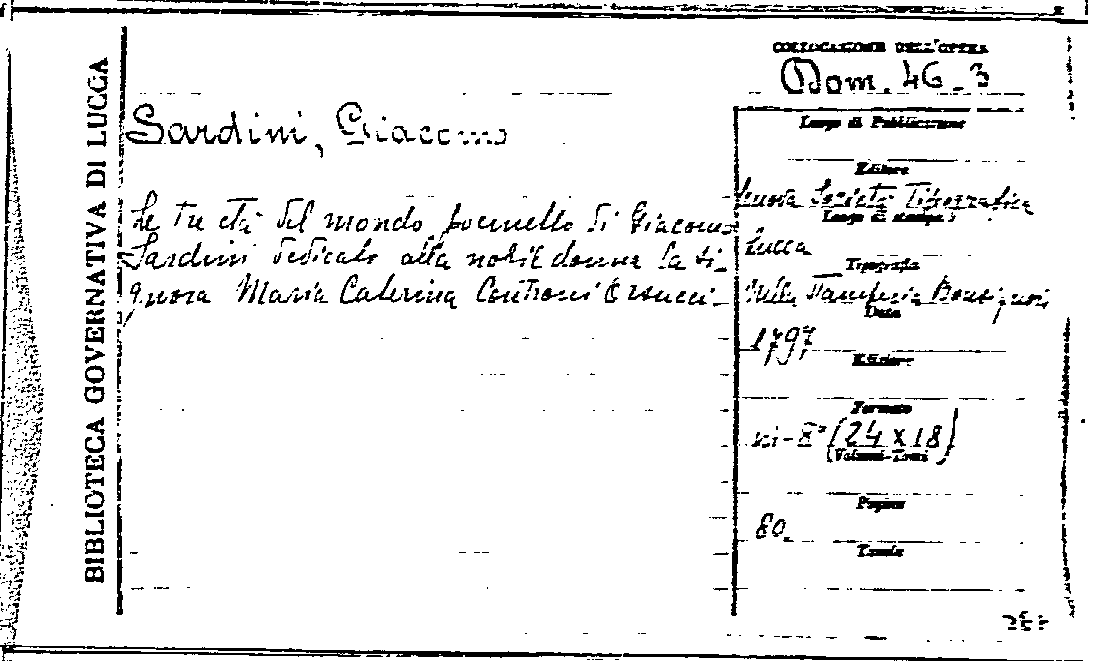 BIBLIOTECA GOVERNATIVA DI LUCCA
COLLOCAZIONE DELL'OPERA
Dom. 46-3
Sardini, Giacomo
Le tre età del mondo poemetto di Giacomo
Sardini dedicato alla nobil donna la si-
gnora Maria Caterina Controni Orsucci
Luogo di Pubblicazione
Editore
Nuova Società Tipografica
Luogo di stampa
Lucca
Tipografia
Nella Stamperia Bonsignori
Data
1797
Edizione
Formato
in-8° (24 x 18)
(Volumi-Tomi
Pagine
80
Tavole